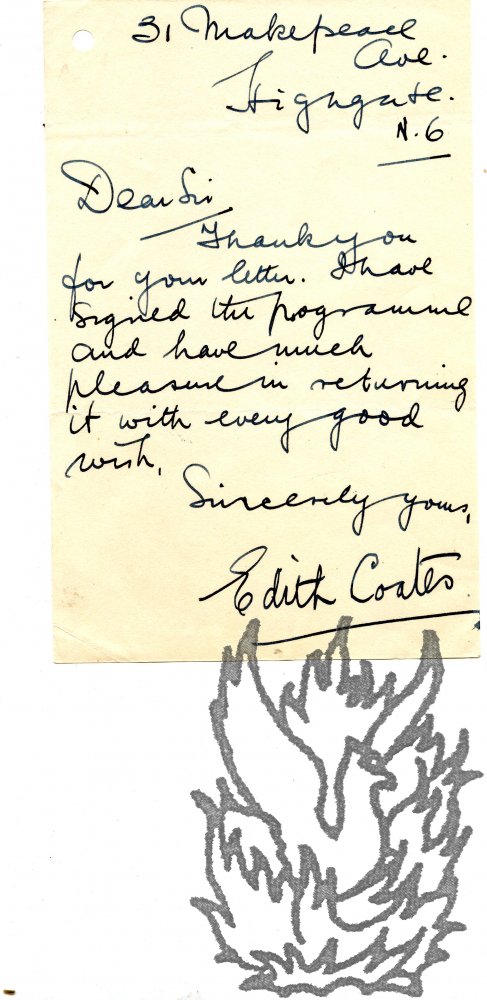 31 Makepeace
Ave.
Highgate.
N.6
Dear Sir
Thank you
for your letter. I have
signed the programme
and have much
pleasure in returning
it with every good
wish,
Sincerely yours,
Edith Coates